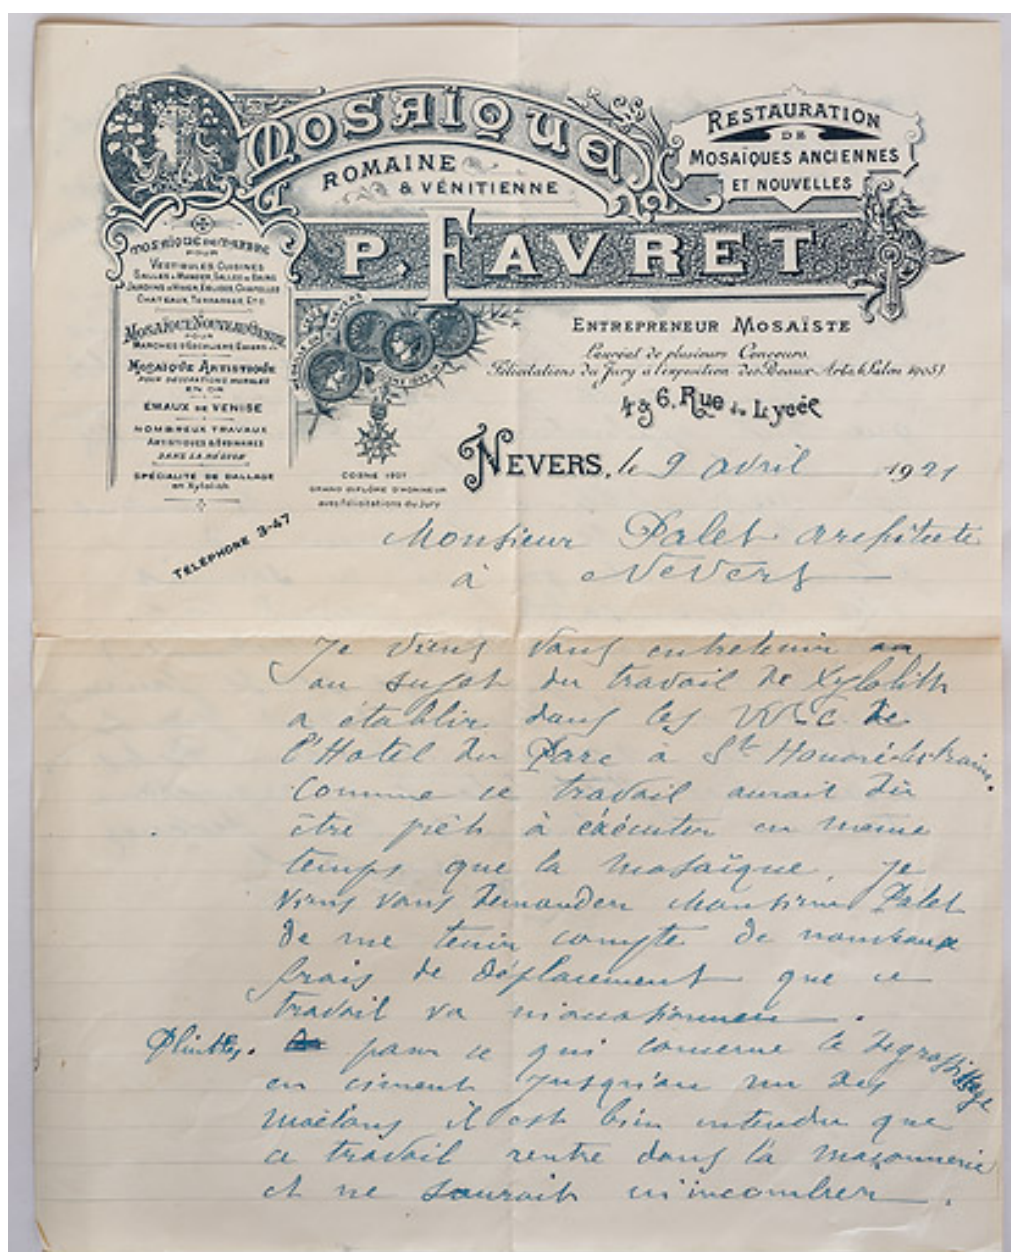 MOSAÏQUE
ROMAINE
& VÉNITIENNE
RESTAURATION
DE
MOSAÏQUES ANCIENNES
ET NOUVELLES
P. FAVRET
MOSAÏQUE DE MARBRE
POUR
VESTIBULES CUISINES
SALLES A MANGER, SALLES DE BAINS
JARDINS D'HIVER, EGLISES, CHAPELLES
CHATEAUX, TERRASSES, ETC
MOSAÏQUE NOUVEAU GENRE
POUR
MARCHES D'ESCALIERS
MOSAÏQUE ARTISTIQUE
POUR DÉCORATIONS MURALES
EN OR
EMAUX DE VENISE
NOMBREUX TRAVAUX
ARTISTIQUES & ORDINAIRES
DANS LA RÉGION
SPÉCIALITÉ DE DALLAGE
en Xylolith
ENTREPRENEUR MOSAÏSTE
Lauréat de plusieurs Concours.
Félicitations du Jury à l'exposition des Beaux-Arts
4 & 6, Rue du Lycée
COSNE 1907
GRAND DIPLÔME D'HONNEUR
avec félicitations du Jury
NEVERS, le 9 avril 1921
TÉLÉPHONE 3-47
Monsieur Palet architecte
à Nevers
Je viens vous entretenir
au sujet du travail de Xylolith
a établir dans les W.C. de
l'Hotel du Parc à St Honoré-les-bains.
Comme ce travail aurait dû
être prêt à éxécuter en même
temps que la mosaïque, je
viens vous demander Monsieur Palet
de me tenir compte de nouveaux
frais de déplacement que ce
travail va m'occasionner.
Plinthes. pour ce qui concerne le degrossissage
en ciment jusqu'au nu des
moëlons il est bien entendu que
ce travail rentre dans la maçonnerie
et ne saurait m'incomber.